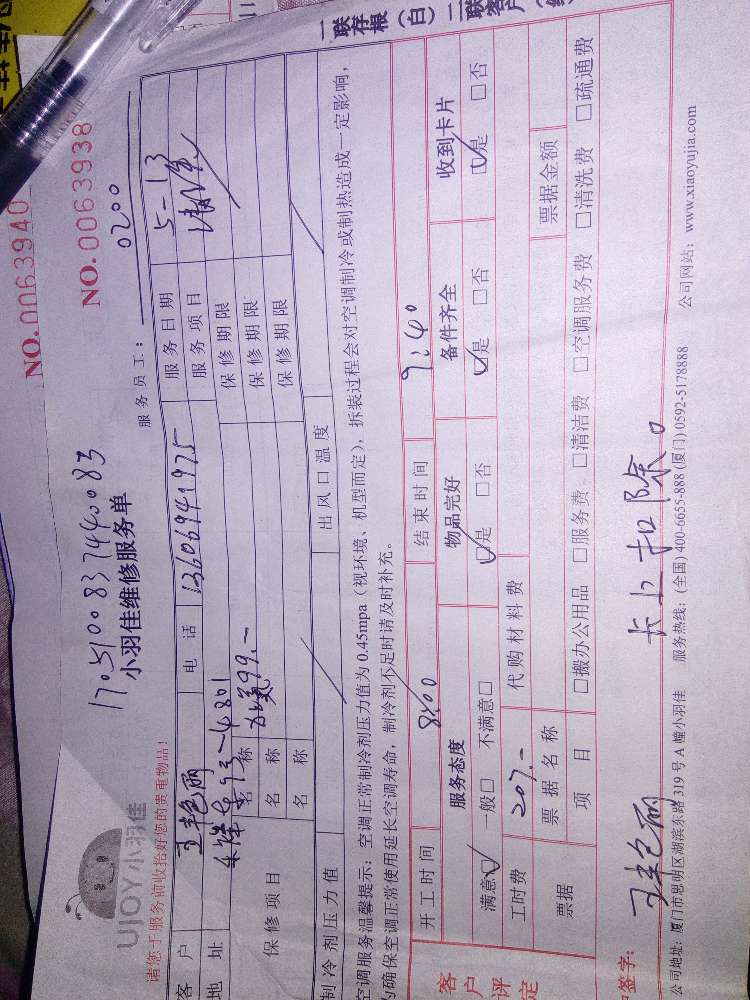 一联存根（白）二联客户（红
NO. 0063940
NO. 0063938
UIOY小羽佳
1705100837440083
小羽佳维修服务单
服务员工： 0200
请您于服务前收拾好您的贵重物品！
客户 王艳丽 电话 13606941975 服务日期 5-13
地址 93-4801 服务项目
保修项目 名称 99.- 保修期限
名称 保修期限
名称 保修期限
制冷剂压力值 出风口温度
空调服务温馨提示：空调正常制冷剂压力值为 0.45mpa（视环境、机型而定），拆装过程会对空调制冷或制热造成一定影响，
为确保空调正常使用延长空调寿命，制冷剂不足时请及时补充。
客户评定
开工时间 8:00 结束时间 9:40
服务态度 物品完好 备件齐全 收到卡片
满意☑ 一般□ 不满意□ ☑是 □否 ☑是 □否 ☑是 □否
工时费 207.- 代购材料费
票据 票据名称 票据金额
项目 □搬办公用品 □服务费 □清洁费 □空调服务费 □清洗费 □疏通费
签字： 王艳丽 卡上扣除。
公司地址：厦门市思明区湖滨东路 319 号 A 幢小羽佳 服务热线：(全国) 400-6655-888 (厦门) 0592-5178888 公司网站：www.xiaoyujia.com